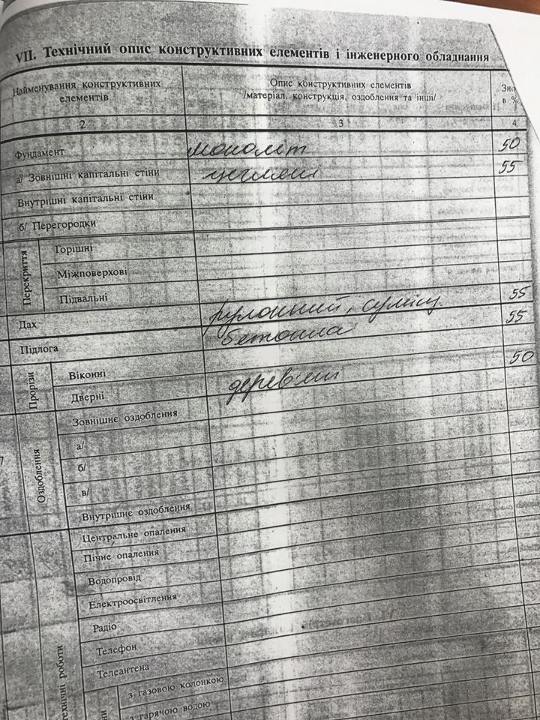 VII. Технічний опис конструктивних елементів і інженерного обладнання
Найменування конструктивних елементів
Опис конструктивних елементів /матеріал, конструкція, оздоблення та інші/
Зно
в %
2 3 4
Фундамент моноліт 50
а/ Зовнішні капітальні стіни цегляні 55
Внутрішні капітальні стіни
б/ Перегородки
Перекриття
Горішні
Міжповерхові
Підвальні
Дах рулонний, суміщ 55
Підлога бетонна 55
Прорізи
Віконні
Дверні деревяні 50
Оздоблення
Зовнішнє оздоблення
а/
б/
в/
Внутрішнє оздоблення
Центральне опалення
Пічне опалення
Водопровід
Електроосвітлення
Радіо
Телефон
Телеантена
роботи
з газовою колонкою
з гарячою водою